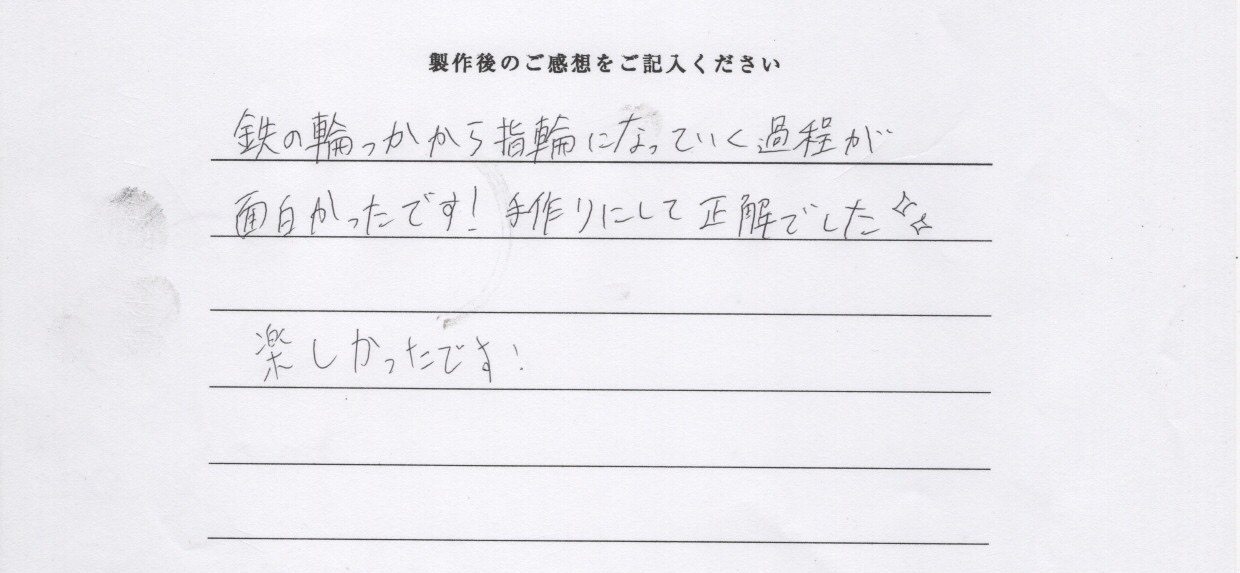 製作後のご感想をご記入ください
鉄の輪っかから指輪になっていく過程が
面白かったです！手作りにして正解でした☆☆
楽しかったです！